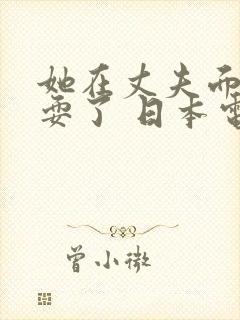 她在丈夫而
耍了 日本电
曾小微